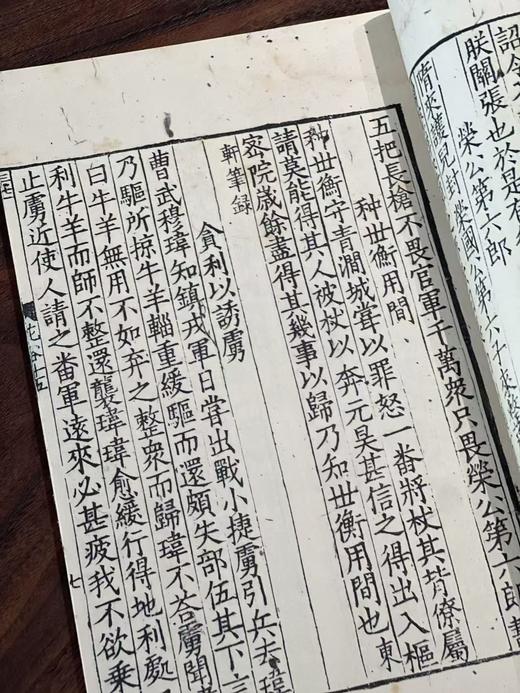 詔令
朕關張也於是有
榮公第六郎
隋來護兒封榮國公第六子來整
五把長槍不畏官軍千萬衆只畏榮公第六郎
种世衡用間
种世衡守青澗城嘗以罪怒一番將杖其背僚屬
請莫能得其人被杖以奔元昊甚信之得出入樞
密院歲餘盡得其幾事以歸乃知世衡用間也東
軒筆録
貪利以誘虜
曹武穆瑋知鎮戎軍日嘗出戰小捷虜引兵去瑋
乃驅所掠牛羊輜重緩驅而還頗失部伍其下言
曰牛羊無用不如弃之整衆而歸瑋不荅虜聞
利牛羊而師不整還襲瑋瑋愈緩行得地利處
止虜近使人請之番軍遠來必甚疲我不欲乘
七